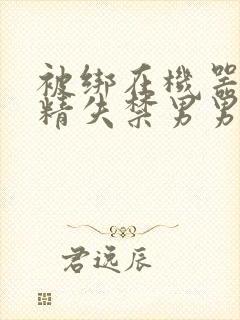 被绑在機器
精失禁男男
君远辰